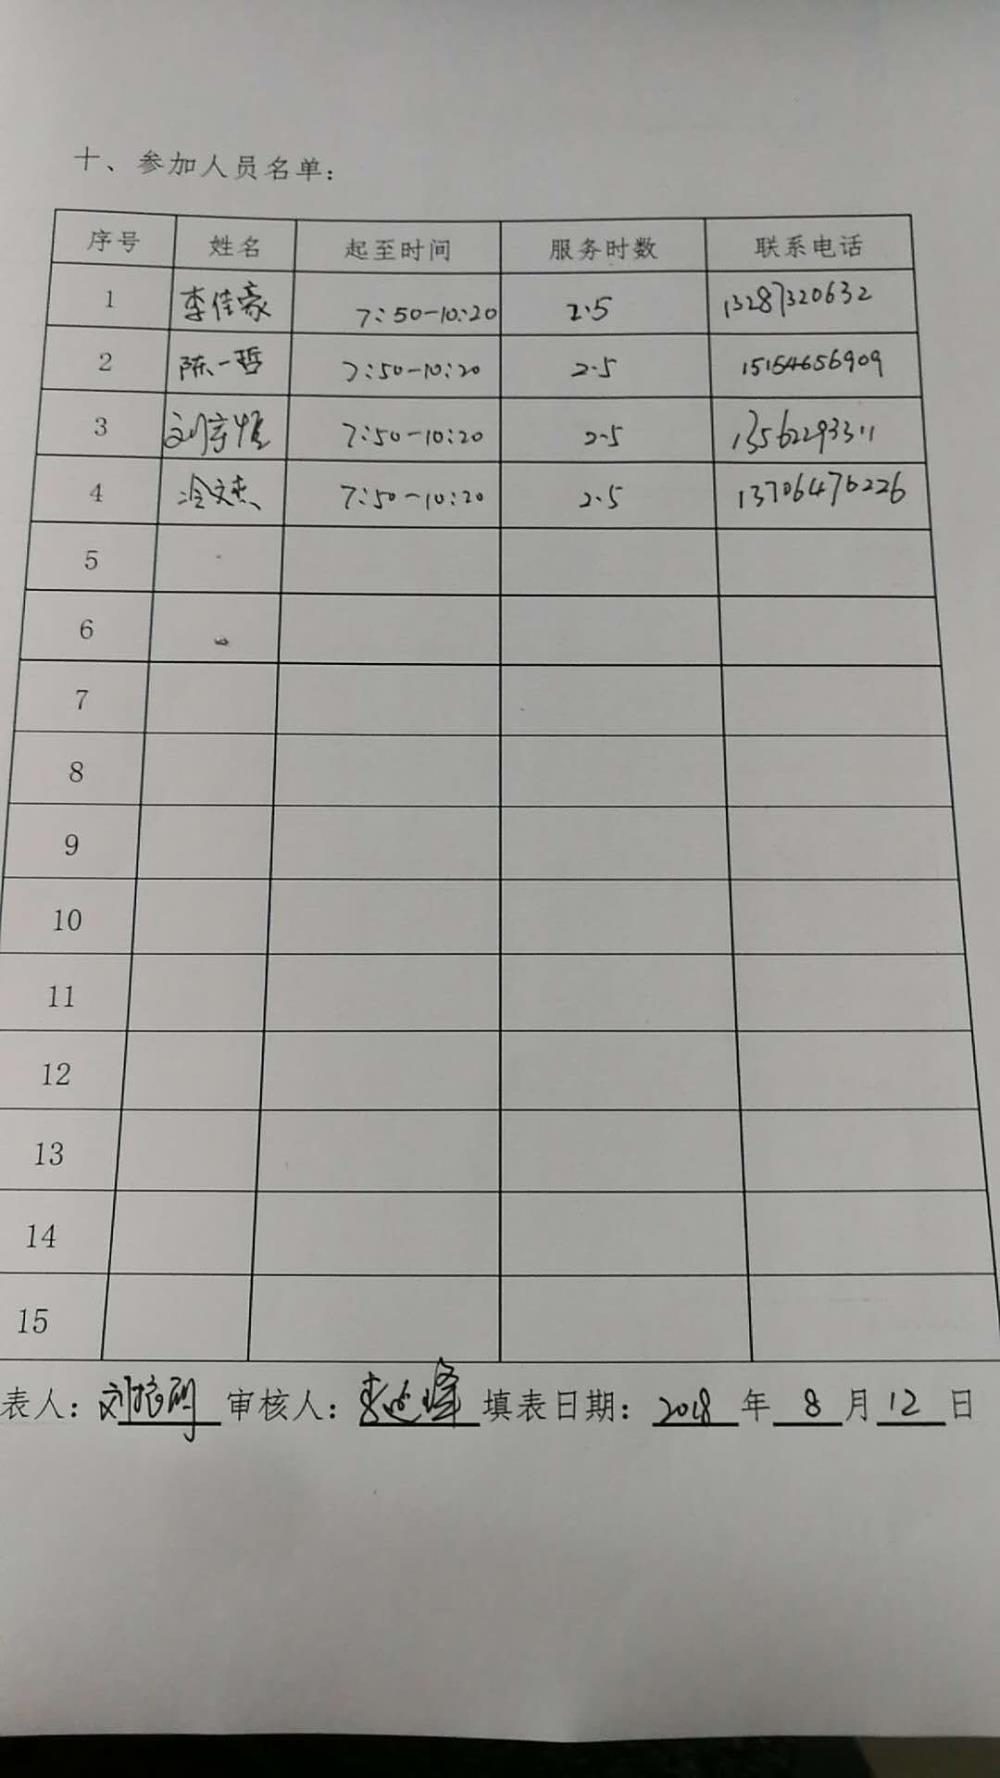 十、参加人员名单：
序号 姓名 起至时间 服务时数 联系电话
1 李佳豪 7:50-10:20 2.5 13287320632
2 陈一哲 7:50-10:20 2.5 15154656909
3 刘宇恒 7:50-10:20 2.5 13562293311
4 冷文杰 7:50-10:20 2.5 13706476226
5
6
7
8
9
10
11
12
13
14
15
表人： 审核人： 填表日期：2018年8月12日